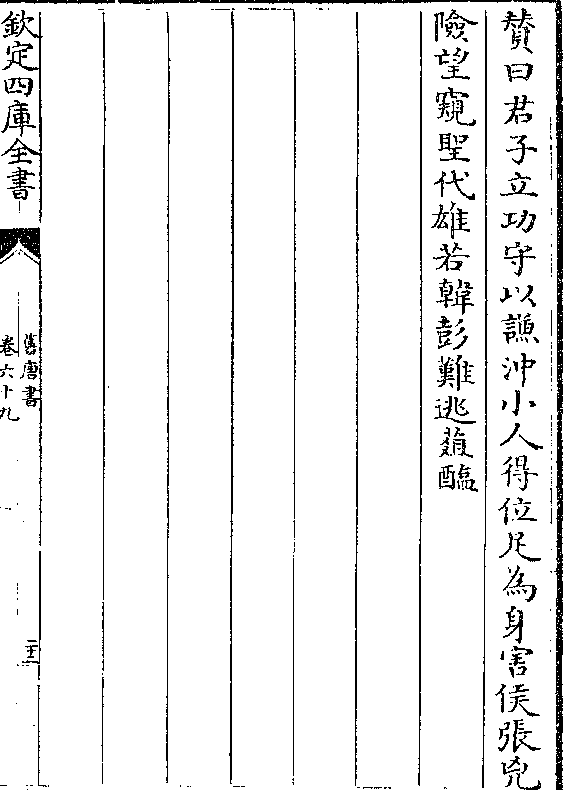 賛曰君子立功守以謙沖小人得位足為身害侯張兇
險望窺聖代雄若韓彭難逃葅醢
欽定四庫全書
舊唐書
卷六十九
二十三